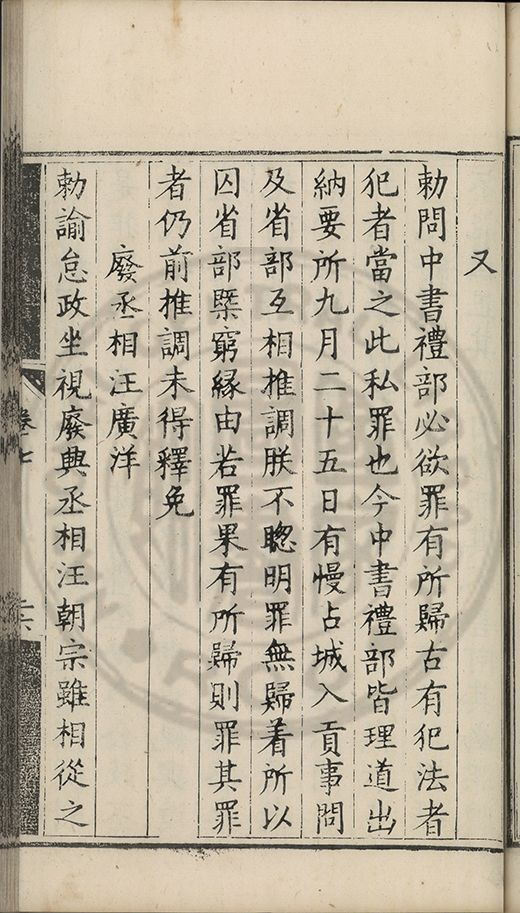 又
勅問中書禮部必欲罪有所歸古有犯法者
犯者當之此私罪也今中書禮部皆理道出
納要所九月二十五日有慢占城入貢事問
及省部互相推調朕不聦明罪無歸着所以
囚省部槩窮縁由若罪果有所歸則罪其罪
者仍前推調未得釋免
廢丞相汪廣洋
勅諭怠政坐視廢興丞相汪朝宗雖相從之
卷七